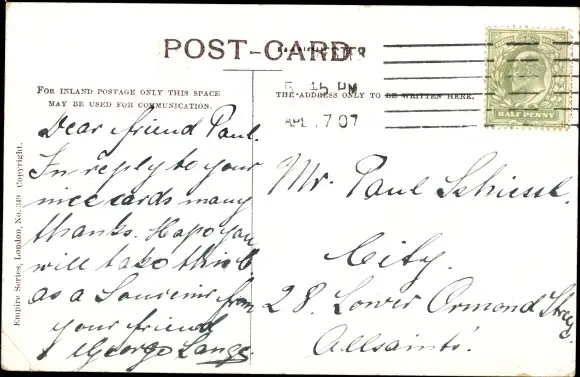 POST-CARD
6 15 PM
APL 7 07
HALF PENNY
FOR INLAND POSTAGE ONLY THIS SPACE
MAY BE USED FOR COMMUNICATION.
THE ADDRESS ONLY TO BE WRITTEN HERE.
Empire Series, London, No. 349. Copyright.
Dear friend Paul.
In reply to your
nice cards many
thanks. Hapo you
will take this
as a Souvenir from
your friend
George Lange.
Mr. Paul Schiesel.
City.
28. Lower Ormond Street
Allsaints.